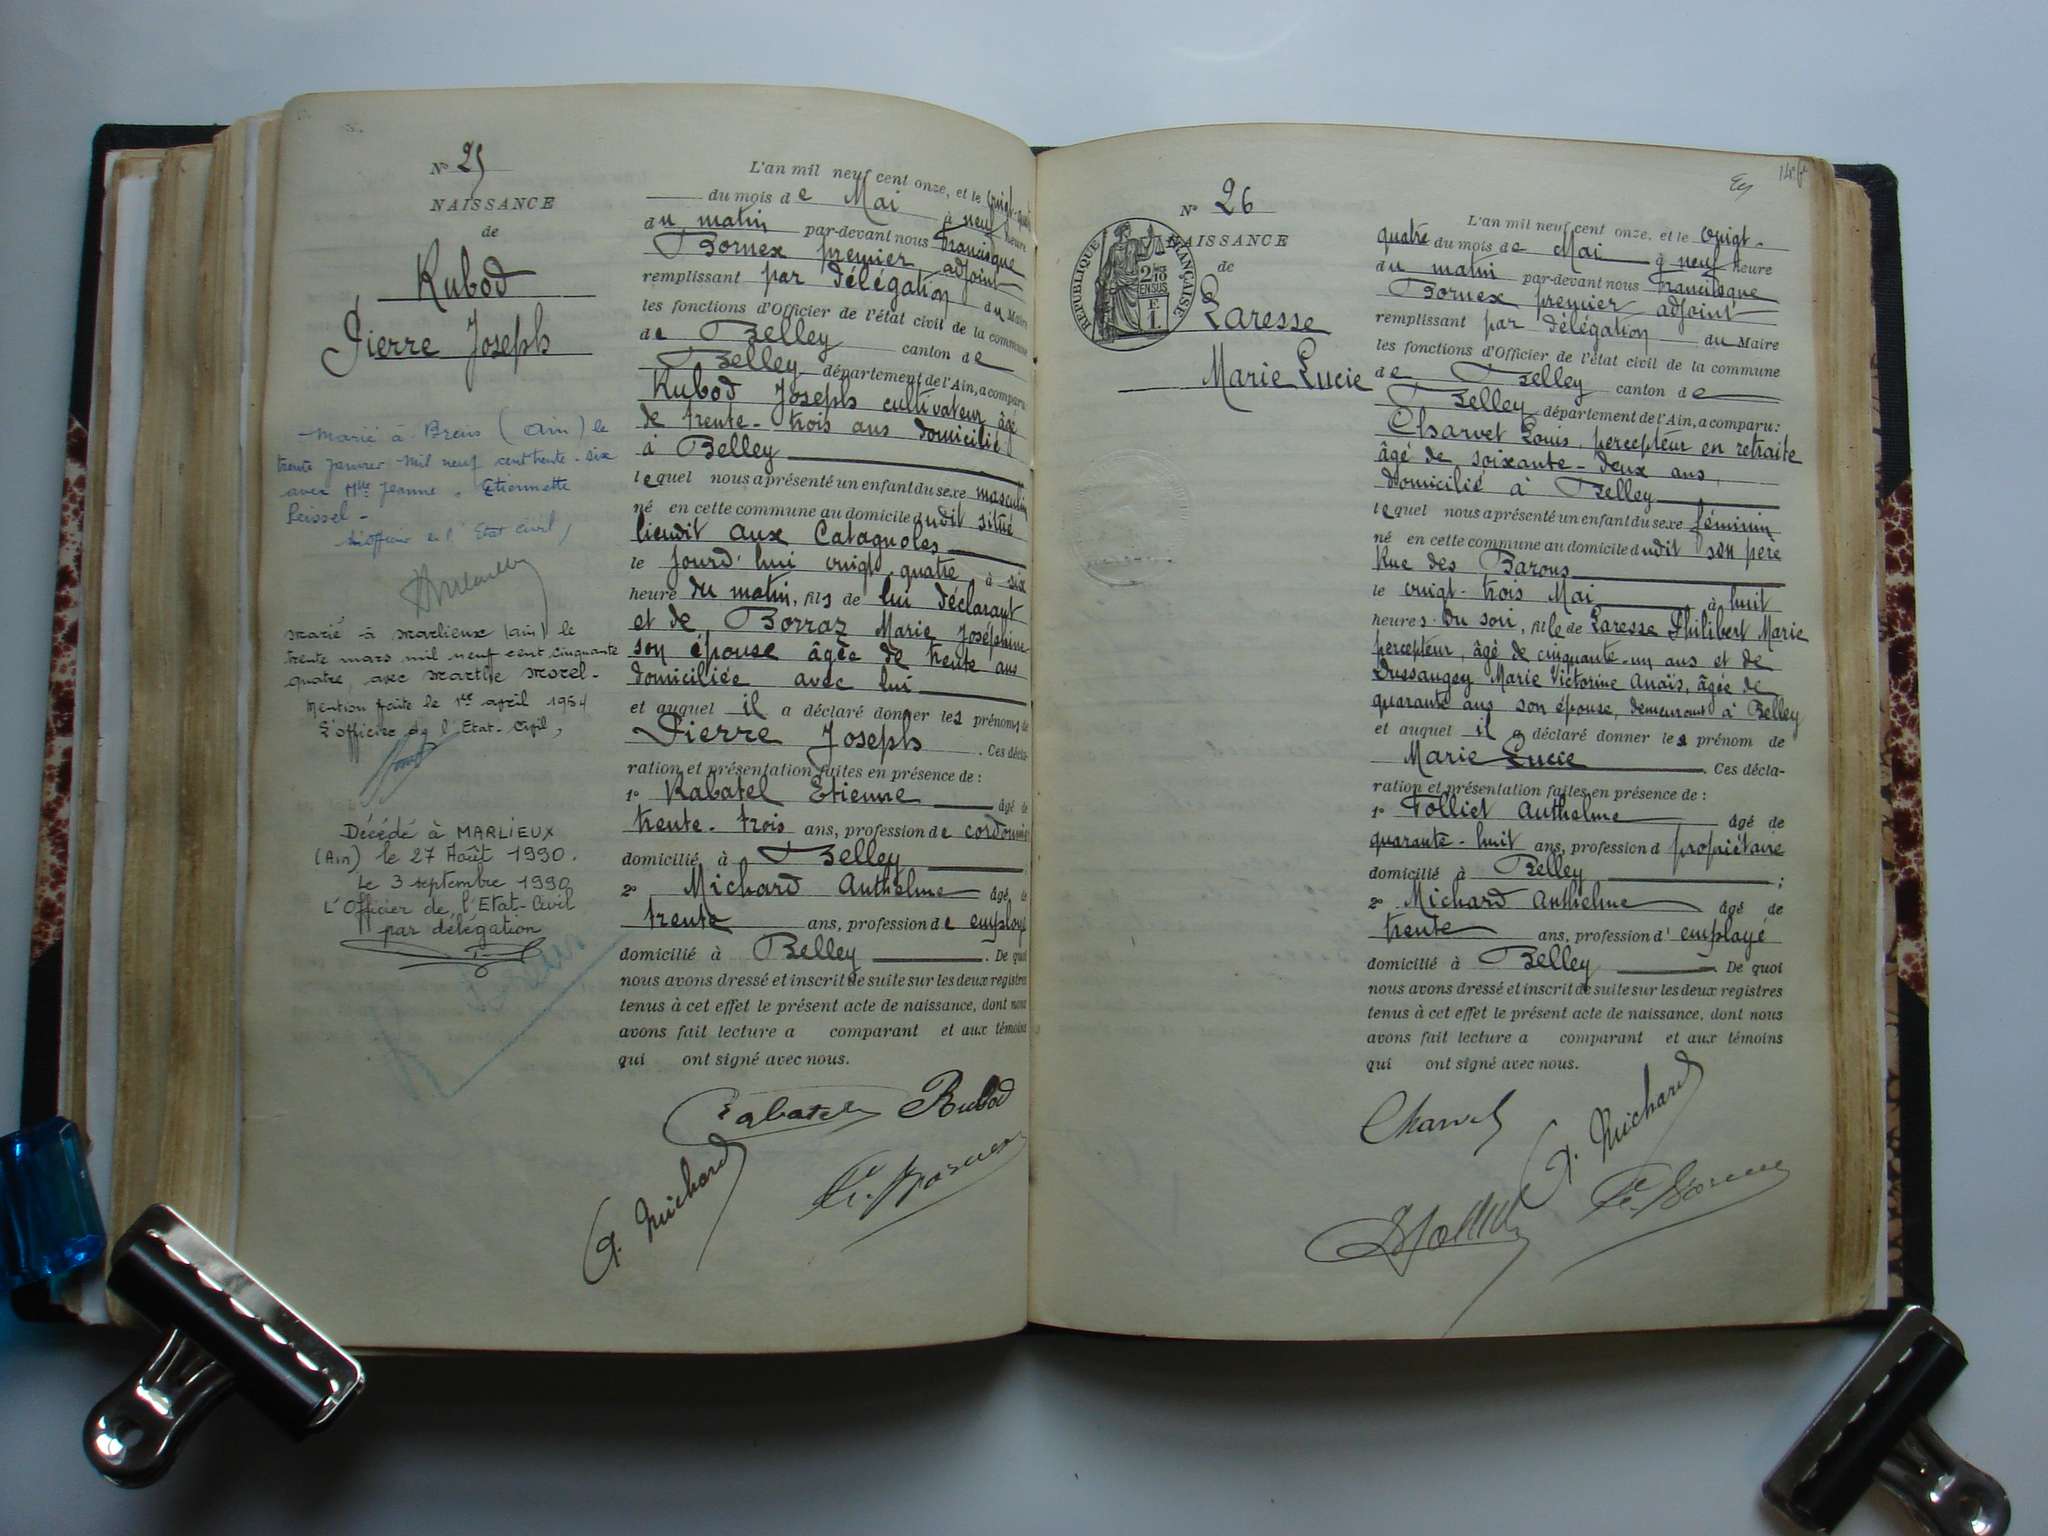 N° 25
NAISSANCE
de
Rubod
Pierre Joseph
Marié à Brens (Ain) le
trente janvier mil neuf cent trente-six
avec Mlle Jeanne Etiennette
Peissel -
L'officier de l'Etat civil,
marié à Marlieux (ain) le
trente mars mil neuf cent cinquante
quatre, avec Marthe Morel-
Mention faite le 1er april 1954
L'officier de l'Etat-Civil,
Décédé à MARLIEUX
(Ain) le 27 Août 1990.
Le 3 septembre 1990
L'Officier de l'Etat-Civil
par délégation
L'an mil neuf cent onze, et le vingt-quatre
du mois de Mai à neuf heure
du matin par-devant nous Francisque
Bornex premier adjoint
remplissant par délégation du Maire
les fonctions d'Officier de l'état civil de la commune
de Belley canton de
Belley département de l'Ain, a comparu
Rubod Joseph cultivateur âgé
de trente-trois ans domicilié
à Belley
lequel nous a présenté un enfant du sexe masculin
né en cette commune au domicile dudit situé
lieudit aux Catagnoles
le jourd'hui vingt quatre à six
heure du matin, fils de lui déclarant
et de Borraz Marie Joséphine
son épouse âgée de trente ans
domiciliée avec lui
et auquel il a déclaré donner les prénoms de
Pierre Joseph. Ces décla-
ration et présentation faites en présence de :
1° Rabatel Etienne âgé de
trente-trois ans, profession de cordonnier
domicilié à Belley ;
2° Michard Anthelme âgé de
trente ans, profession de employé
domicilié à Belley. De quoi
nous avons dressé et inscrit de suite sur les deux registres
tenus à cet effet le présent acte de naissance, dont nous
avons fait lecture a comparant et aux témoins
qui ont signé avec nous.
Rabatel Rubod
A. Michard Fr. Bornex
146
N° 26
NAISSANCE
de
RÉPUBLIQUE FRANÇAISE
2/10 EN SUS
F
1
Laresse
Marie Lucie
L'an mil neuf cent onze, et le vingt-
quatre du mois de Mai à neuf heure
du matin par-devant nous Francisque
Bornex premier adjoint
remplissant par délégation du Maire
les fonctions d'Officier de l'état civil de la commune
de Belley canton de
Belley département de l'Ain, a comparu :
Charvet Louis, percepteur en retraite
âgé de soixante-deux ans,
domicilié à Belley
lequel nous a présenté un enfant du sexe féminin
né en cette commune au domicile dudit son père
Rue des Barons
le vingt-trois Mai à huit
heures du soir, fille de Laresse Philibert Marie
percepteur, âgé de cinquante-un ans et de
Dussaugey Marie Victorine Anaïs, âgée de
quarante ans son épouse, demeurant à Belley
et auquel il a déclaré donner les prénom de
Marie Lucie. Ces décla-
ration et présentation faites en présence de :
1° Tolliet Anthelme âgé de
quarante-huit ans, profession d propriétaire
domicilié à Belley ;
2° Michard Anthelme âgé de
trente ans, profession d'employé
domicilié à Belley. De quoi
nous avons dressé et inscrit de suite sur les deux registres
tenus à cet effet le présent acte de naissance, dont nous
avons fait lecture a comparant et aux témoins
qui ont signé avec nous.
Charvet A. Michard
Tolliet Fr. Bornex